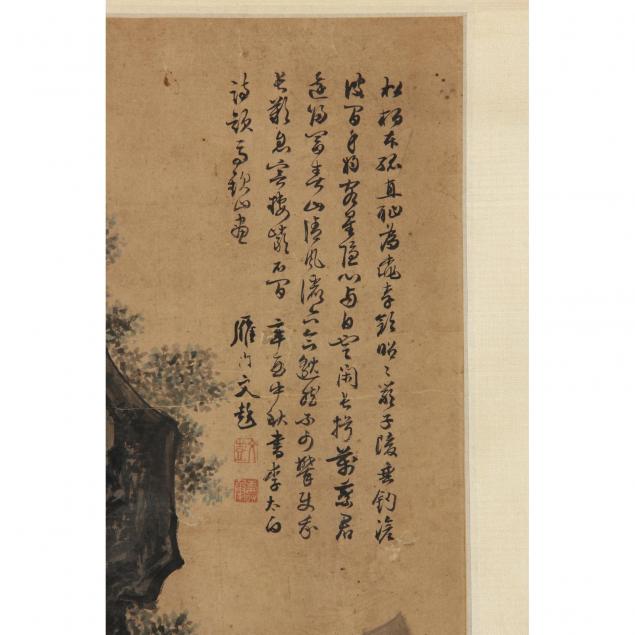 松柏本孤直耻為桃李顏昭々嚴子陵垂釣滄
波間身將客星隱心与白雲閑長揖萬乘君
還歸富春山清風灑六合邈然不可攀使我
長歎息冥棲巖石間 辛酉中秋書李太白
詩題馬欽山畫 雁門文彭